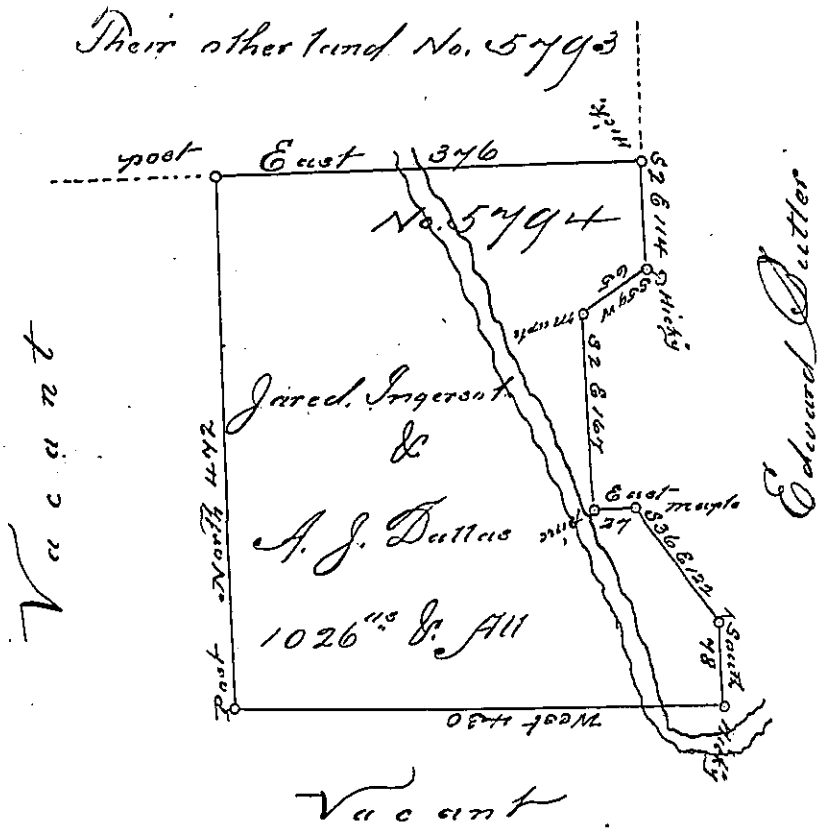 Their other land No. 5793
post
East 376
Hick.
S 2 E 114
No. 5794
Hicky
S 59 W
65
Maple
S 2 E 167
Edward Butler
Vacant
North 472
Jared. Ingersol.
&
A. J. Dallas
1026 as & All
East
27
maple
pine
S 36 E 122
South
78
Post
West 430
Hicky
Vacant